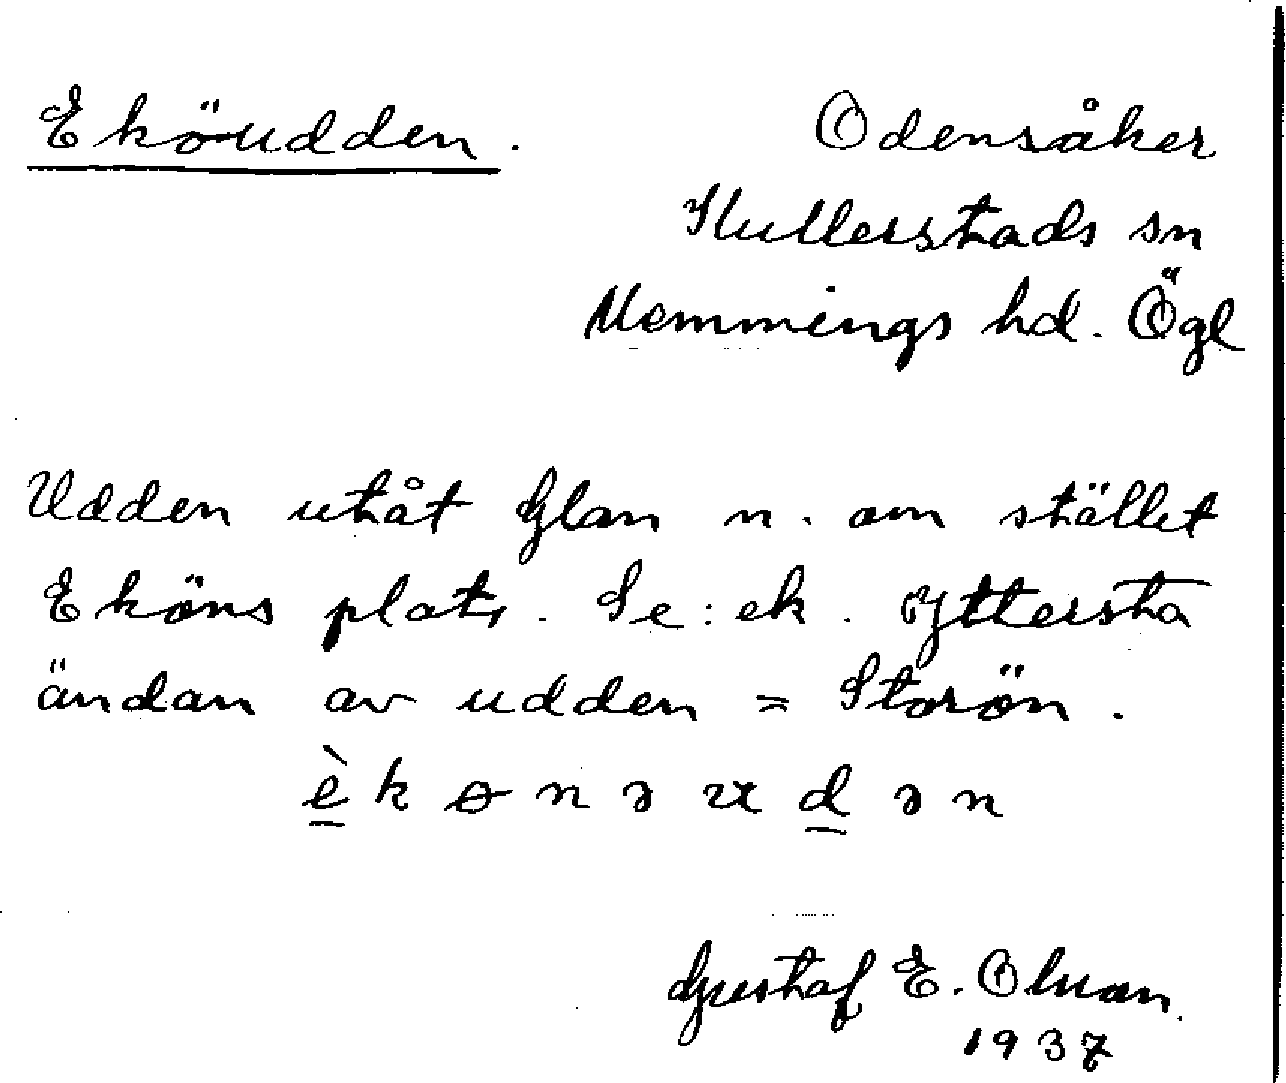 Eköudden. Odensåker
Kullerstads sn
Memmings hd. Ögl
Udden utåt Glan n. om stället
Eköns plats. Se: ek. Yttersta
ändan av udden = Storön.
èkɵnəudən
Gustaf E. Olsson.
1937